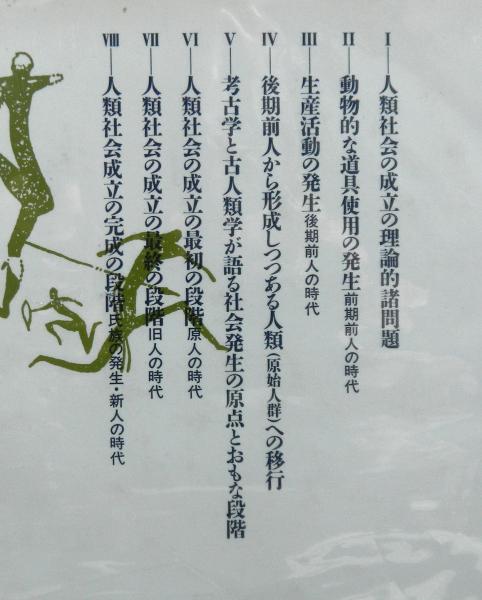 I—人類社会の成立の理論的諸問題
II—動物的な道具使用の発生 前期前人の時代
III—生産活動の発生 後期前人の時代
IV—後期前人から形成しつつある人類(原始人群)への移行
V—考古学と古人類学が語る社会発生の原点とおもな段階
VI—人類社会の成立の最初の段階 原人の時代
VII—人類社会の成立の最終の段階 旧人の時代
VIII—人類社会成立の完成の段階 氏族の発生・新人の時代